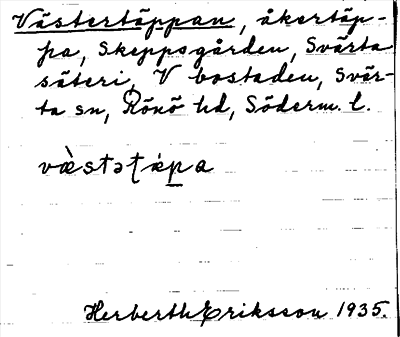 Västertäppan, åkertäp-
pa, Skeppsgården, Svärta
säteri, V bostaden, Svär-
ta sn, Rönö hd, Söderm. l.
væ̀stətæpa
Herberth Eriksson 1935.